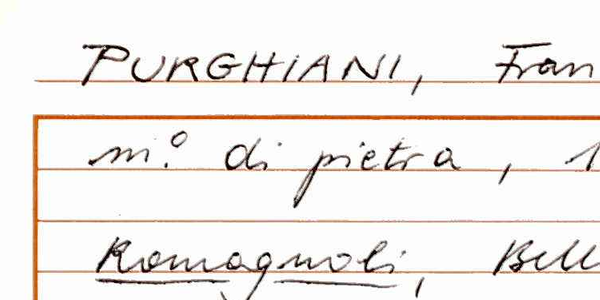 PURGHIANI, Fran
m.º di pietra, 1
Romagnoli, Bell